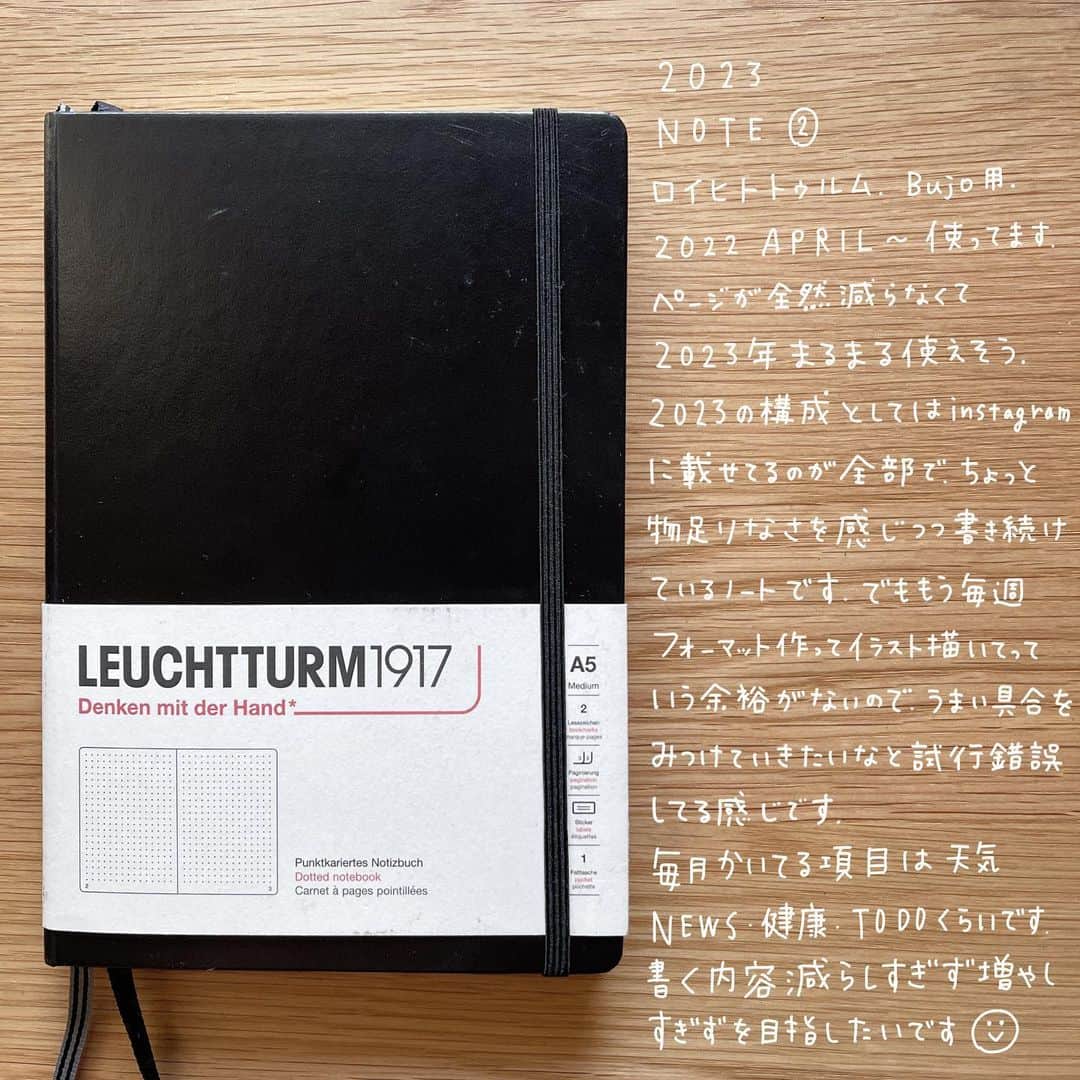 2023
NOTE ②
ロイヒトトゥルム. Bujo用.
2022 APRIL〜使ってます.
ページが全然減らなくて
2023年まるまる使えそう.
2023の構成としてはinstagram
に載せてるのが全部で、ちょっと
物足りなさを感じつつ書き続け
ているノートです. でももう毎週
フォーマット作ってイラスト描いてって
いう余裕がないので、うまい具合を
みつけていきたいなと試行錯誤
してる感じです.
毎月かいてる項目は天気
NEWS・健康・TODOくらいです.
書く内容減らしすぎず増やし
すぎずを目指したいです
LEUCHTTURM1917
Denken mit der Hand*
2
3
Punktkariertes Notizbuch
Dotted notebook
Carnet à pages pointillées
A5
Medium
2
Lesezeichen
bookmarks
marque-pages
Paginierung
pagination
pagination
Sticker
labels
étiquettes
1
Falttasche
pocket
pochette